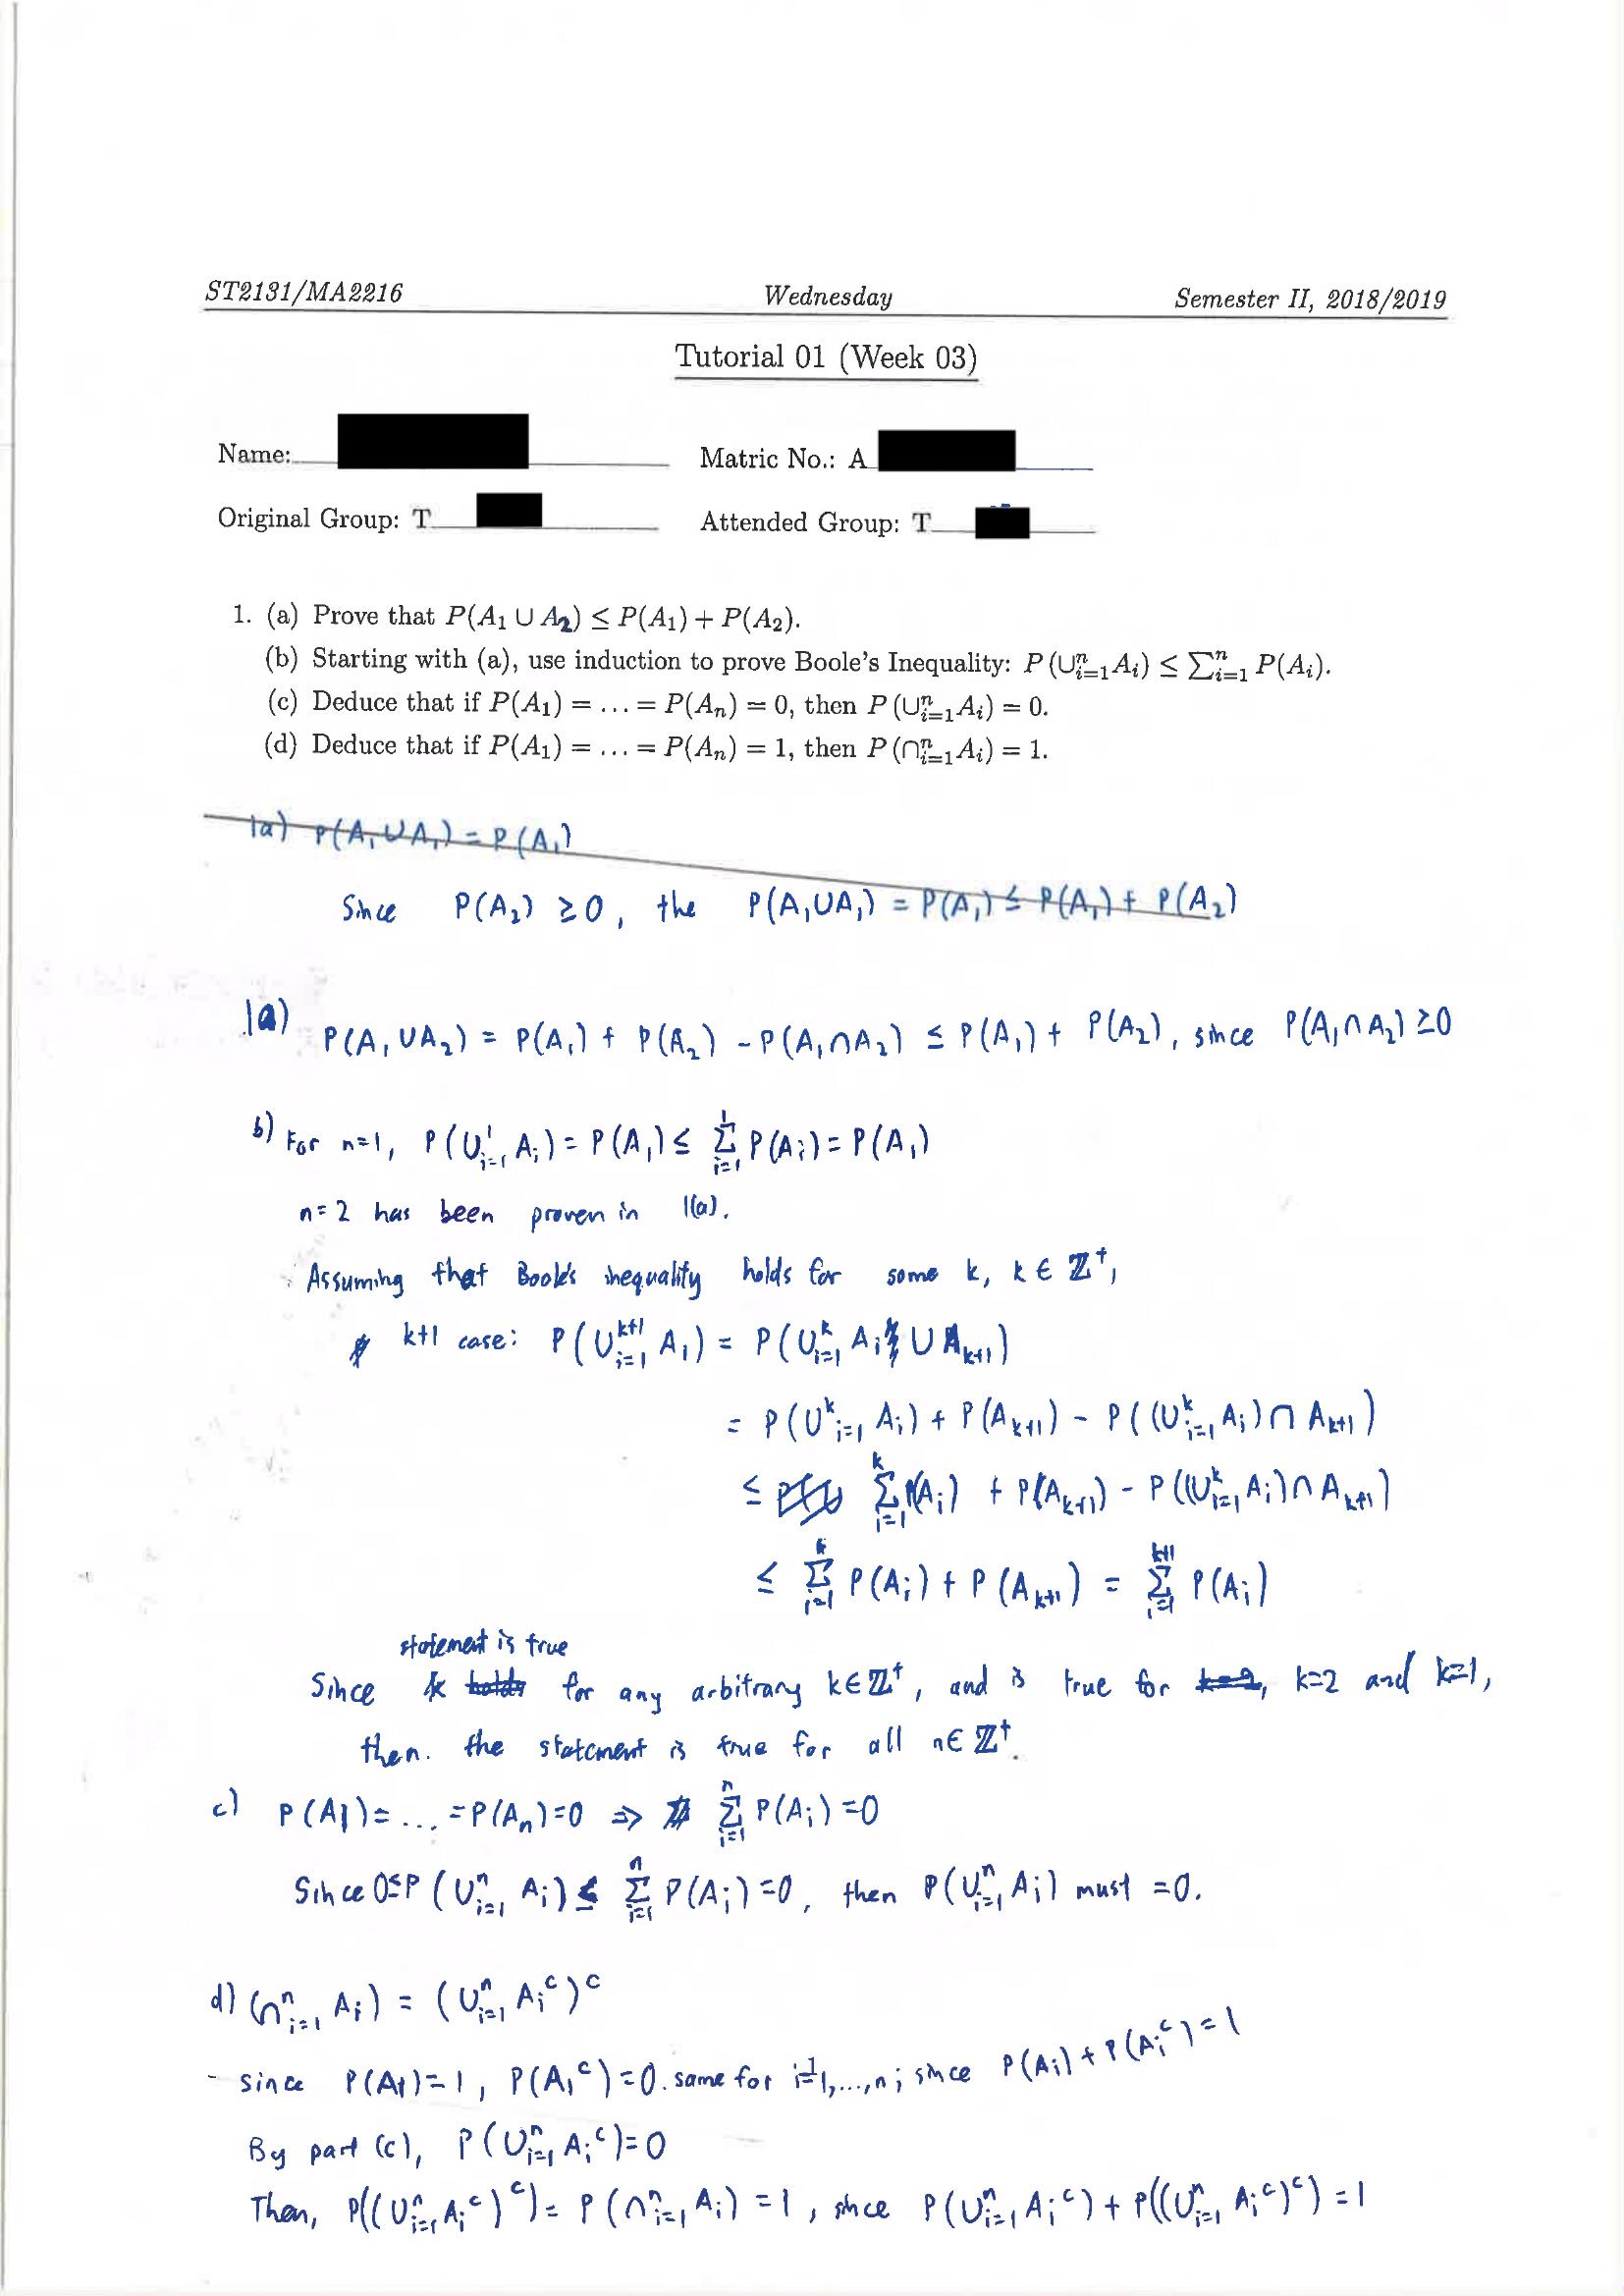 ST2131/MA2216 Wednesday Semester II, 2018/2019
Tutorial 01 (Week 03)
Name: Matric No.: A
Original Group: T Attended Group: T
1. (a) Prove that P(A₁ ∪ A₂) ≤ P(A₁) + P(A₂).
(b) Starting with (a), use induction to prove Boole's Inequality: P(∪ⁿᵢ₌₁Aᵢ) ≤ ∑ⁿᵢ₌₁ P(Aᵢ).
(c) Deduce that if P(A₁) = ... = P(Aₙ) = 0, then P(∪ⁿᵢ₌₁Aᵢ) = 0.
(d) Deduce that if P(A₁) = ... = P(Aₙ) = 1, then P(∩ⁿᵢ₌₁Aᵢ) = 1.
1a) P(A₁∪A₁) = P(A₁)
Since P(A₂) ≥0, the P(A₁∪A₁) = P(A₁) ≤ P(A₁) + P(A₂)
1a) P(A₁∪A₂) = P(A₁) + P(A₂) - P(A₁∩A₂) ≤ P(A₁) + P(A₂), since P(A₁∩A₂) ≥0
b) For n=1, P(∪¹ᵢ₌₁ Aᵢ) = P(A₁) ≤ ∑¹ᵢ₌₁ P(Aᵢ) = P(A₁)
n=2 has been proven in 1(a).
Assuming that Boole's inequality holds for some k, k ∈ ℤ⁺,
k+1 case: P(∪ᵏ⁺¹ᵢ₌₁ Aᵢ) = P(∪ᵏᵢ₌₁ Aᵢ ∪ Aₖ₊₁)
= P(∪ᵏᵢ₌₁ Aᵢ) + P(Aₖ₊₁) - P((∪ᵏᵢ₌₁ Aᵢ)∩ Aₖ₊₁)
≤ ∑ᵏᵢ₌₁ P(Aᵢ) + P(Aₖ₊₁) - P((∪ᵏᵢ₌₁ Aᵢ)∩ Aₖ₊₁)
≤ ∑ᵏᵢ₌₁ P(Aᵢ) + P(Aₖ₊₁) = ∑ᵏ⁺¹ᵢ₌₁ P(Aᵢ)
statement is true
Since k holds for any arbitrary k∈ℤ⁺, and is true for k=2, k=2 and k=1,
then. the statement is true for all n∈ ℤ⁺.
c) P(A₁)= ... =P(Aₙ)=0 ⇒ ∑ⁿᵢ₌₁ P(Aᵢ) =0
Since 0≤P(∪ⁿᵢ₌₁ Aᵢ) ≤ ∑ⁿᵢ₌₁ P(Aᵢ) =0, then P(∪ⁿᵢ₌₁ Aᵢ) must =0.
d) (∩ⁿᵢ₌₁ Aᵢ) = (∪ⁿᵢ₌₁ Aᵢᶜ)ᶜ
- since P(A₁)=1, P(A₁ᶜ)=0. same for i=1,...,n; since P(Aᵢ) + P(Aᵢᶜ) = 1
By part (c), P(∪ⁿᵢ₌₁ Aᵢᶜ)=0
Then, P((∪ⁿᵢ₌₁ Aᵢᶜ)ᶜ) = P(∩ⁿᵢ₌₁ Aᵢ) = 1, since P(∪ⁿᵢ₌₁ Aᵢᶜ) + P((∪ⁿᵢ₌₁ Aᵢᶜ)ᶜ) = 1